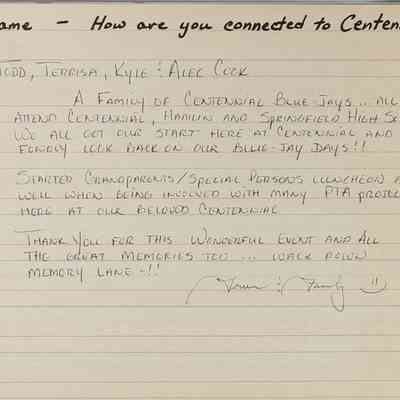 ame - How are you connected to Centen
Todd, Terrisa, Kyle & Alec Cock
A Family of Centennial Blue-Jays... All
Attend Centennial, Hamlin and Springfield High Sc
We all got our start here at Centennial and
fondly look back on our Blue-Jay Days!!
Started Grandparents/Special Persons luncheon a
well when being involved with many PTA projec
here at our beloved Centennial
Thank You for this Wonderful Event and All
the great memories too ... walk down
memory lane-!!
& Family